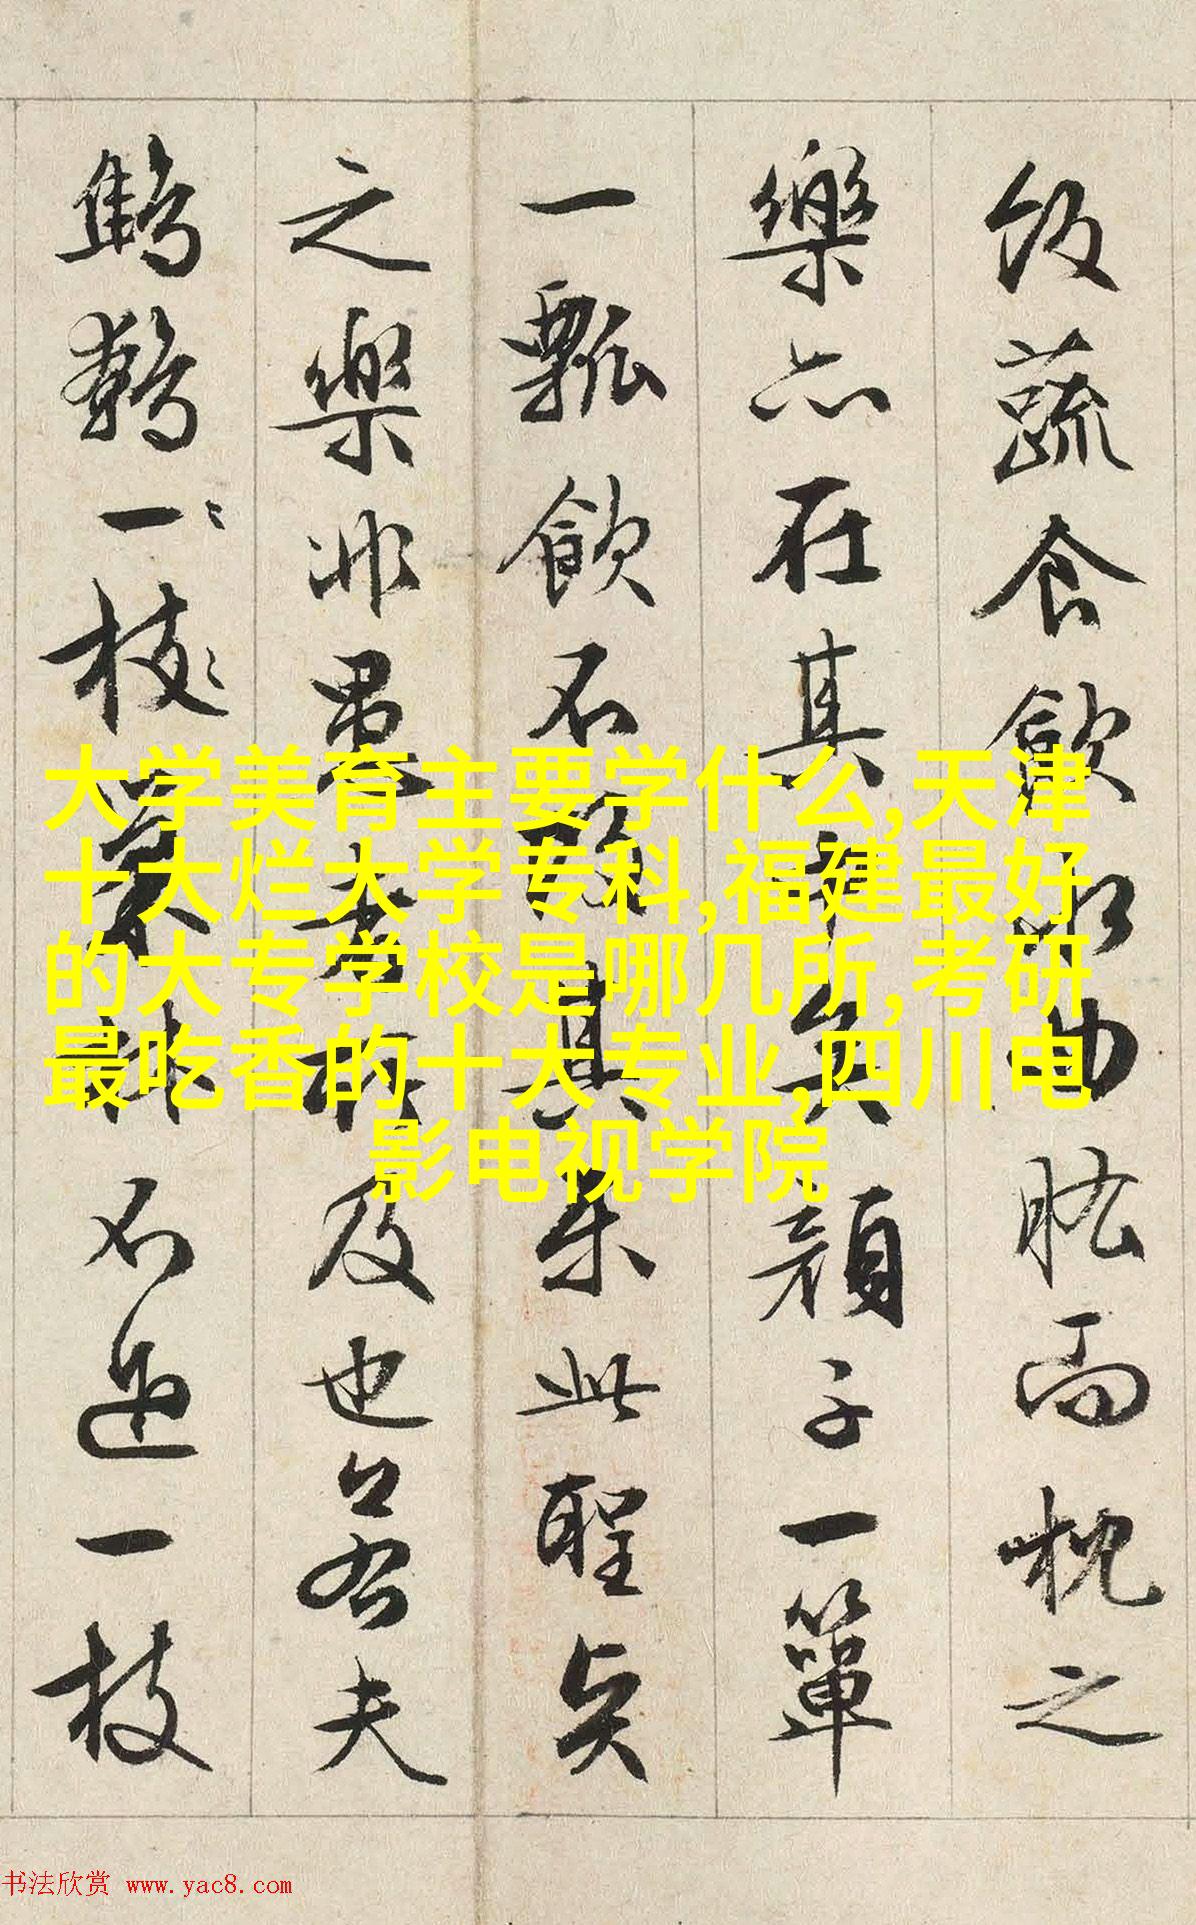 飯蔬食飲水曲肱而枕之
樂亦在其中矣顏子一簞
一瓢飲不改其樂此聖賢
之樂非愚者所及也若夫
鷦鷯一枝巢林不過一枝
大学美育主要学什么,天津
十大烂大学专科,福建最好
的大专学校是哪几所,考研
最吃香的十大专业,四川电
影电视学院
书法欣赏 www.yac8.com